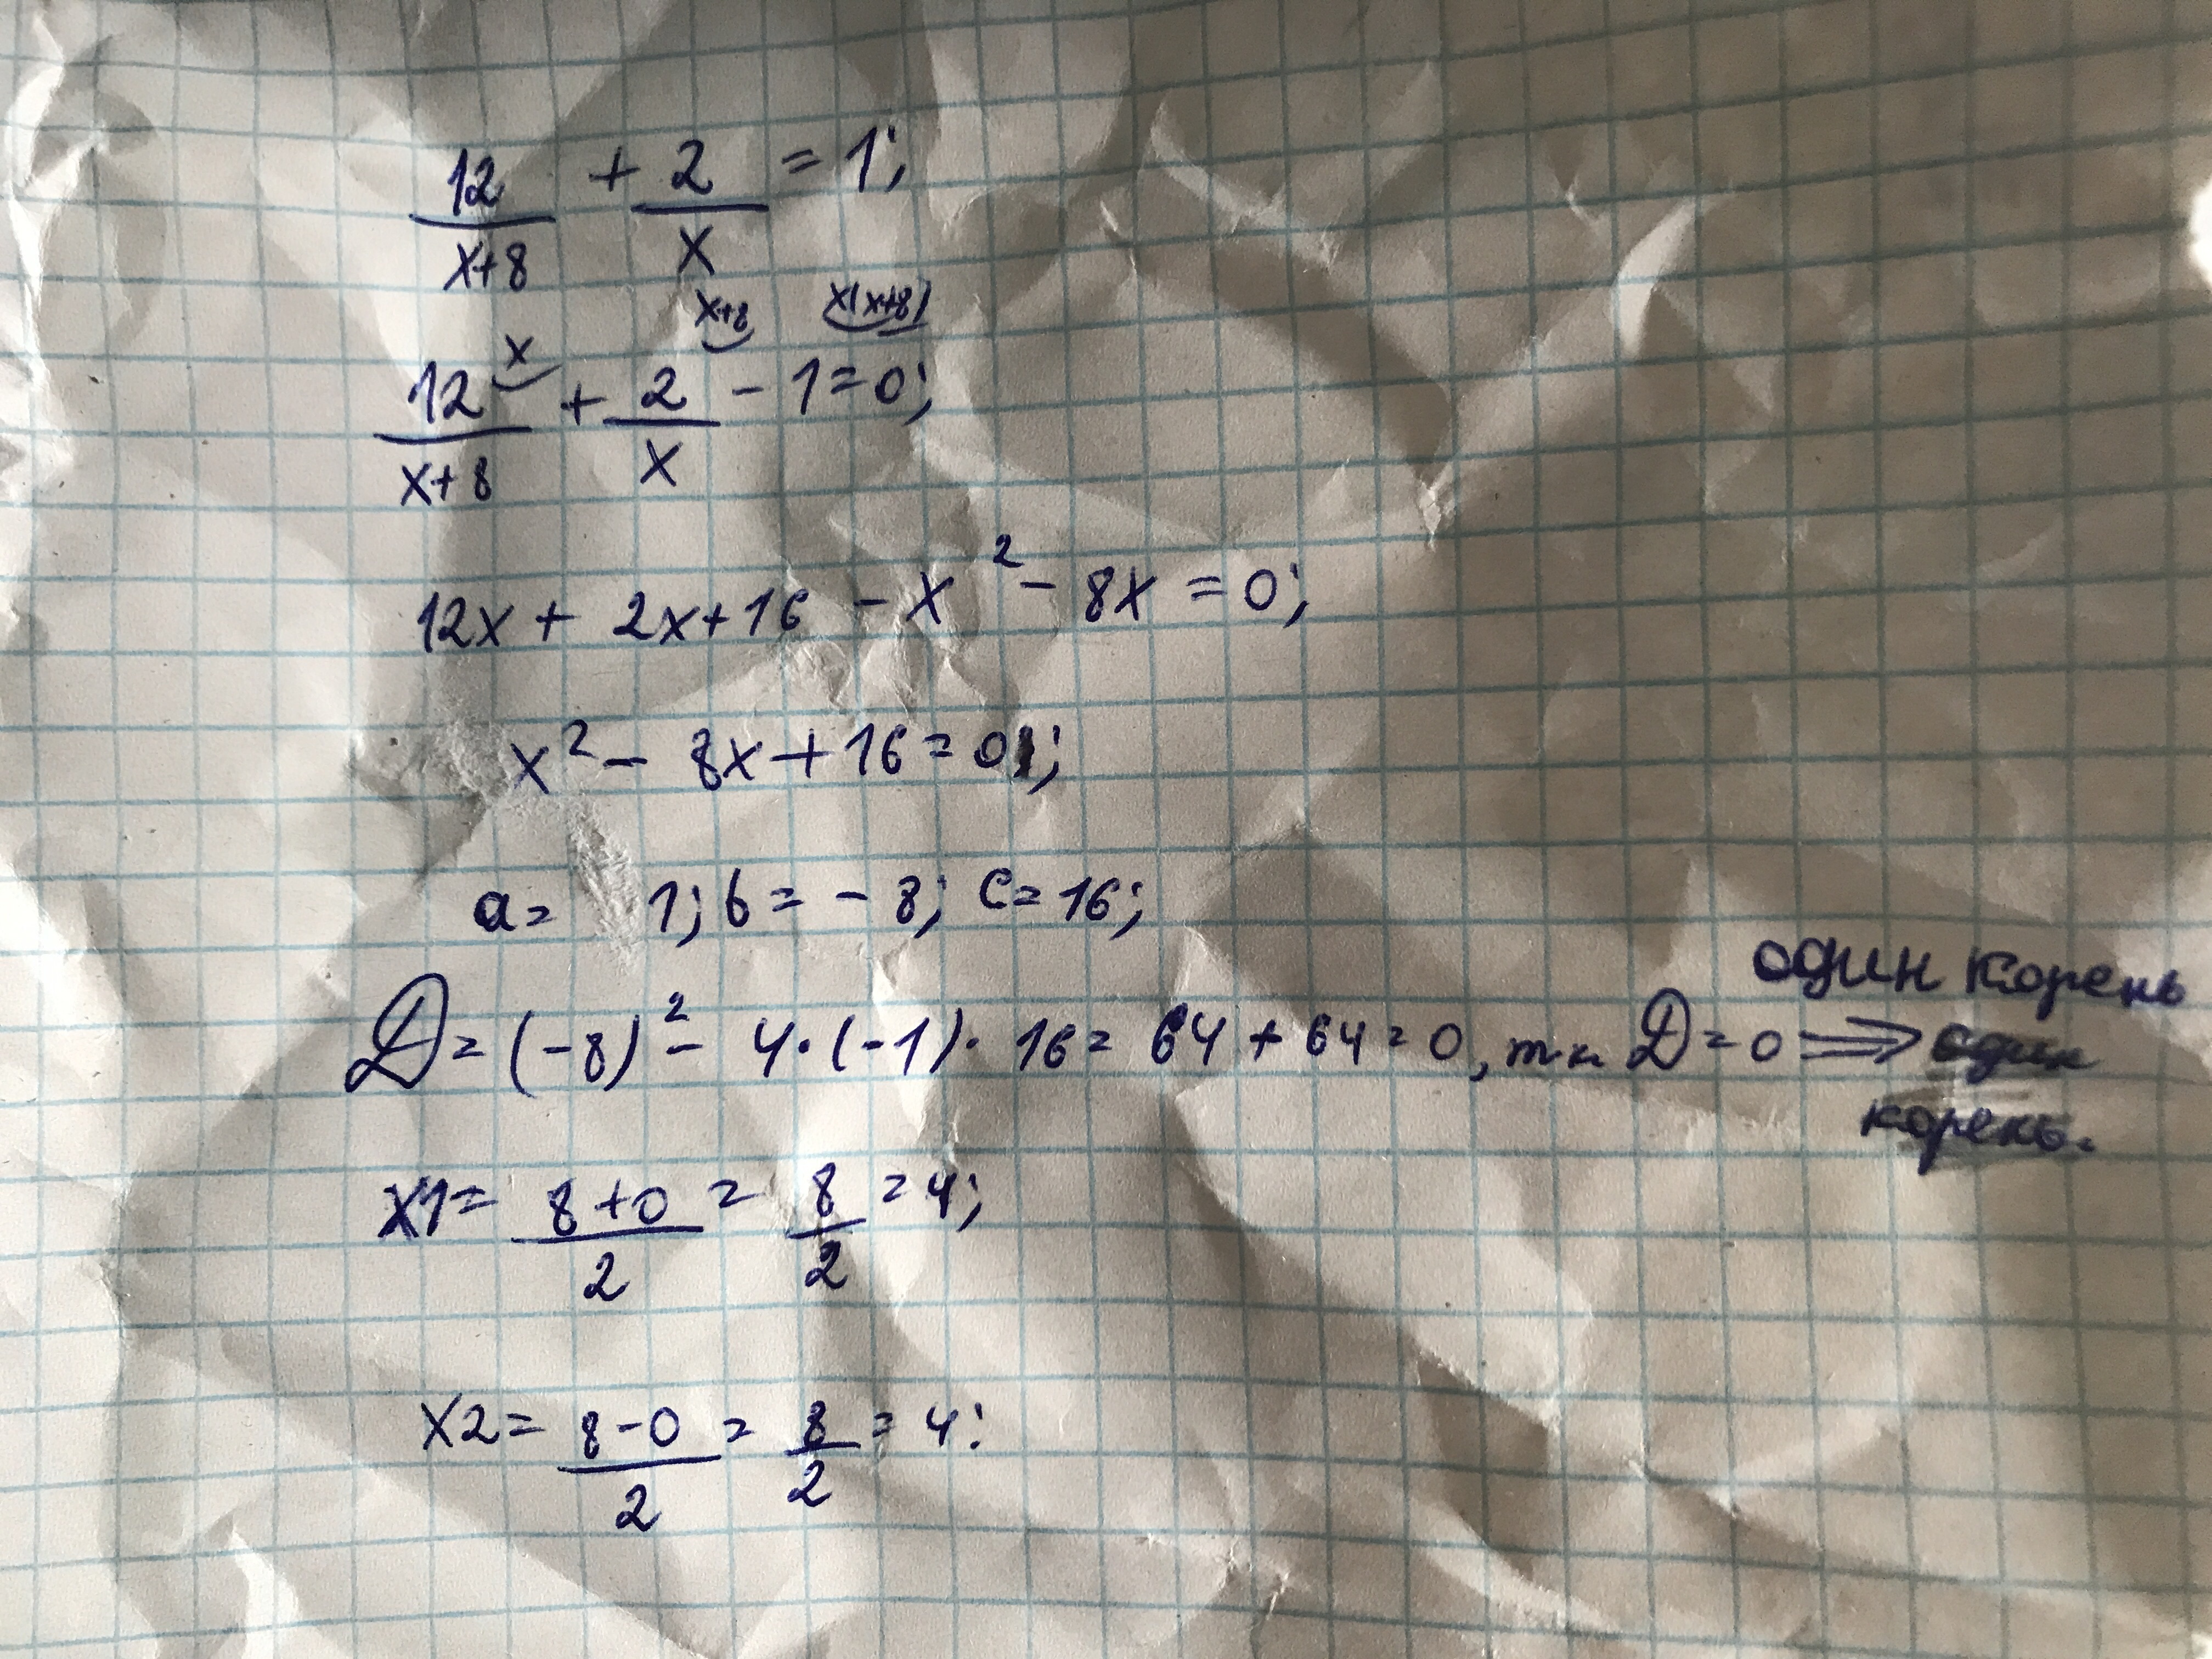 12/(x+8) + 2/x = 1;
x x+8 x(x+8)
12/(x+8) + 2/x - 1 = 0;
12x + 2x + 16 - x² - 8x = 0;
x² - 8x + 16 = 0;
a = 1; b = -8; c = 16;
один корень
D = (-8)² - 4·(-1)·16 = 64 + 64 = 0, т к D = 0 ⟹ один
корень.
x1 = (8+0)/2 = 8/2 = 4;
x2 = (8-0)/2 = 8/2 = 4: